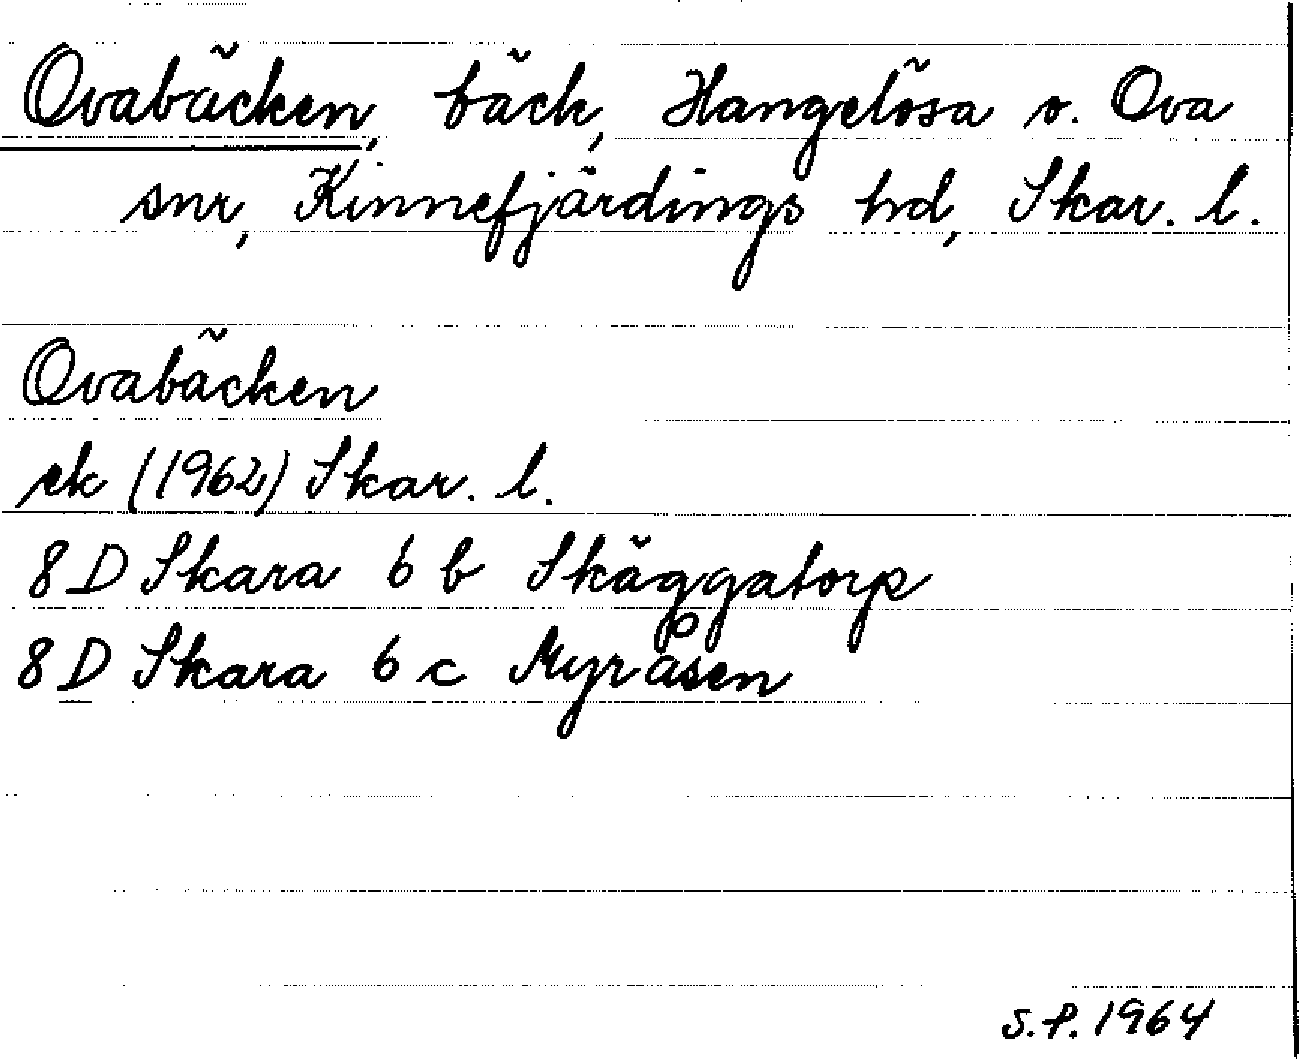 Ovabäcken, bäck, Hangelösa o. Ova
snr, Kinnefjärdings hd, Skar. l.
Ovabäcken
ek (1962) Skar. l.
8 D Skara 6 b Skäggatorp
8 D Skara 6 c Myråsen
S.P. 1964